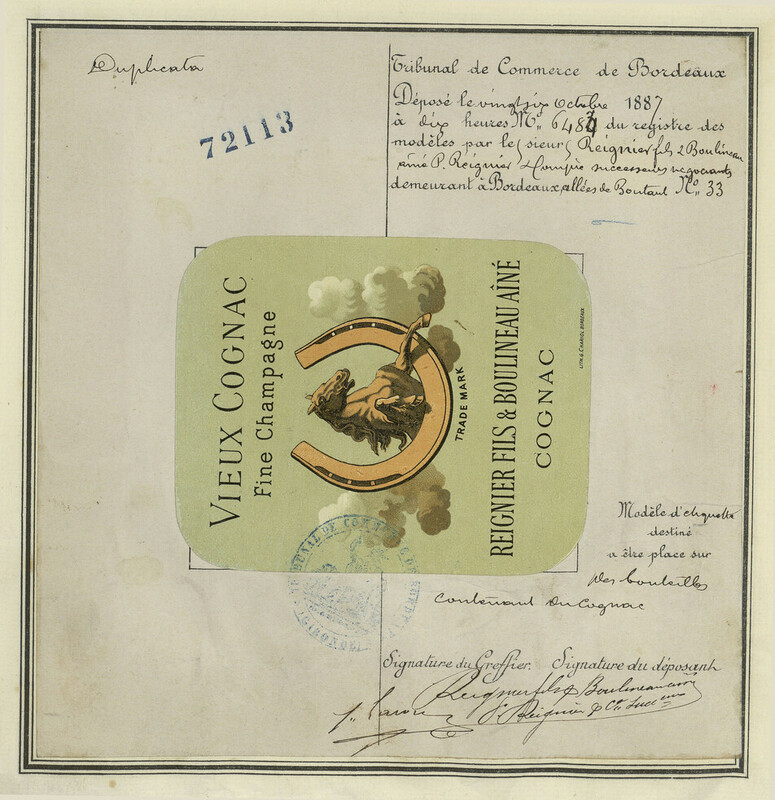 Duplicata
72113
Tribunal de Commerce de Bordeaux
Déposé le vingt six Octobre 1887
à dix heures No. 648 du registre des
modèles par le sieurs Reignier fils & Boulineau
aîné P. Reignier & Compie successeurs negociants
demeurant à Bordeaux allées de Boutaut No. 33
VIEUX COGNAC
Fine Champagne
TRADE MARK
REIGNIER FILS & BOULINEAU AÎNÉ
COGNAC
LITH. G. CHARIOL BORDEAUX
Modèle d'etiquette
destiné
a être place sur
des bouteilles
contenant du Cognac
TRIBUNAL DE COMMERCE DE BORDEAUX
(GIRONDE)
Signature du Greffier. Signature du déposant
Reignier fils & Boulineau aîné
P. Reignier & Cie Succrs